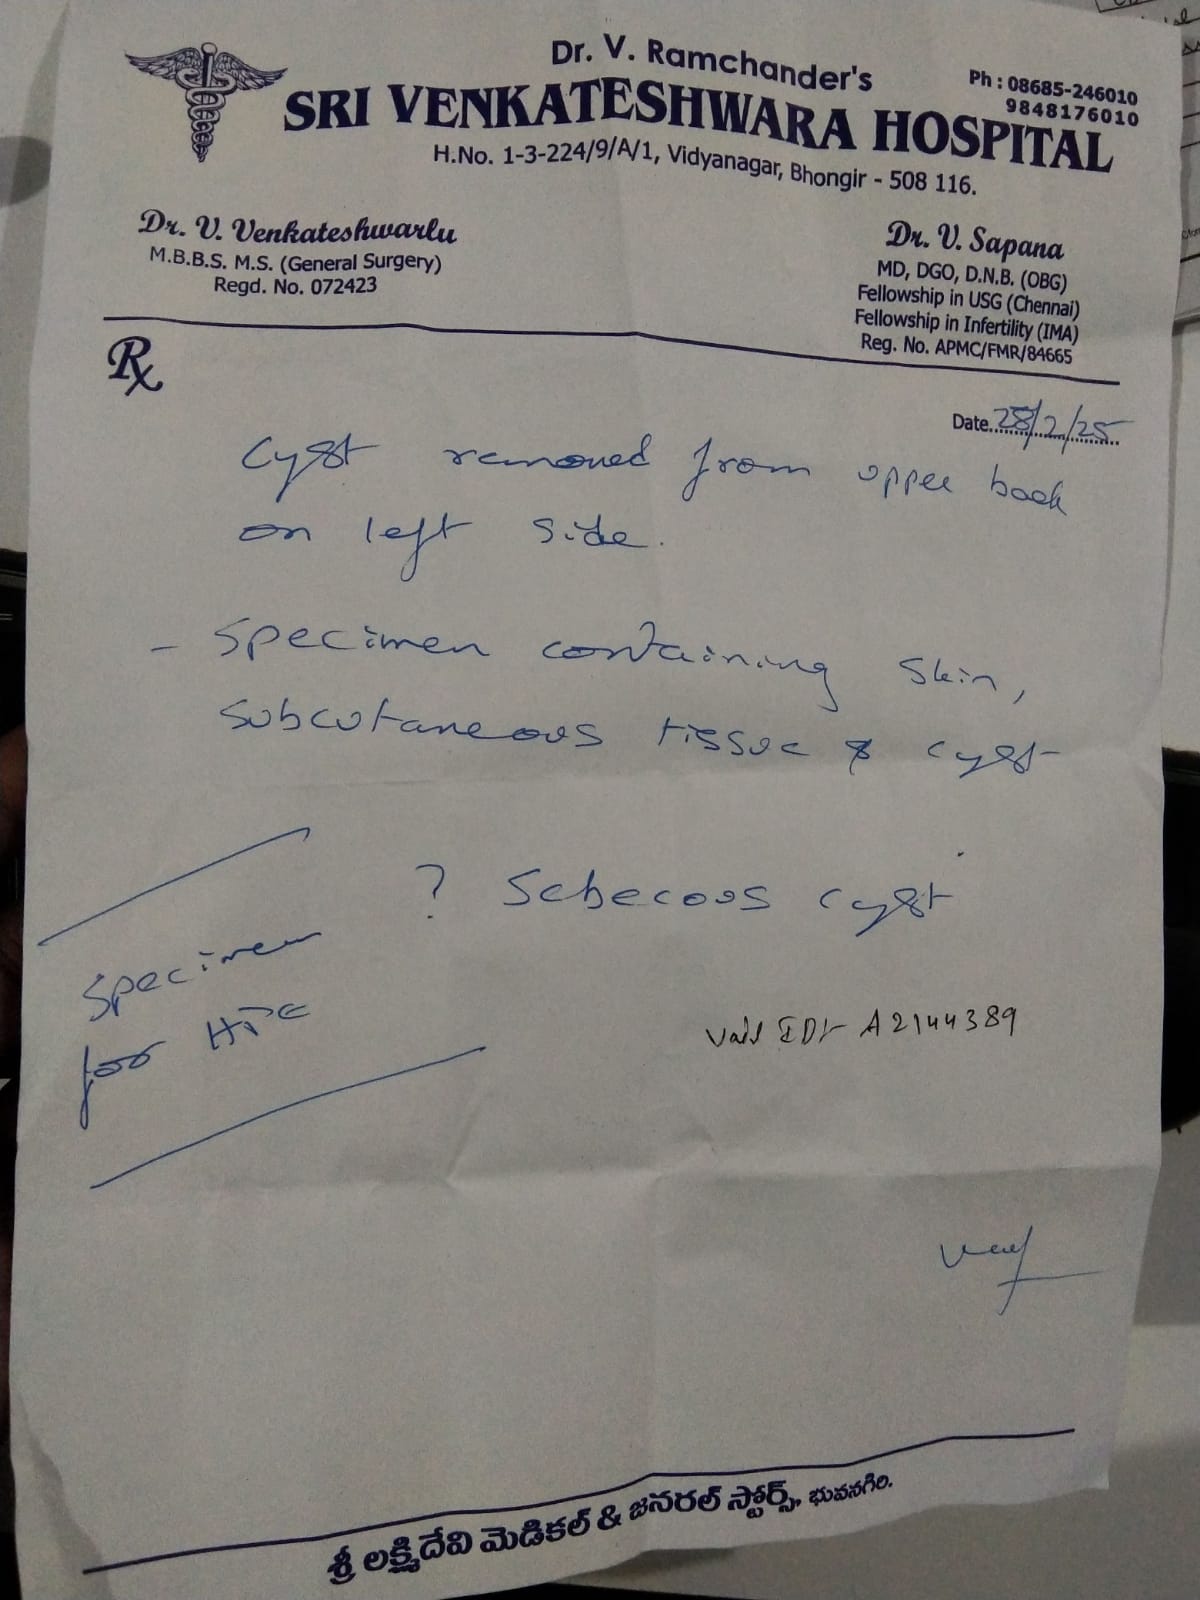 Dr. V. Ramchander's
SRI VENKATESHWARA HOSPITAL
Ph : 08685-246010
9848176010
H.No. 1-3-224/9/A/1, Vidyanagar, Bhongir - 508 116.
Dr. V. Venkateshwarlu
M.B.B.S. M.S. (General Surgery)
Regd. No. 072423
Dr. V. Sapana
MD, DGO, D.N.B. (OBG)
Fellowship in USG (Chennai)
Fellowship in Infertility (IMA)
Reg. No. APMC/FMR/84665
Rx
Date 28/2/25
Cyst removed from upper back
on left side.
- Specimen containing skin,
subcutaneous tissue & cyst
? Sebecous cyst
Specimen
for HPE
Vail ID:- A2144389
శ్రీ లక్ష్మిదేవి మెడికల్ & జనరల్ స్టోర్స్, భువనగిరి.